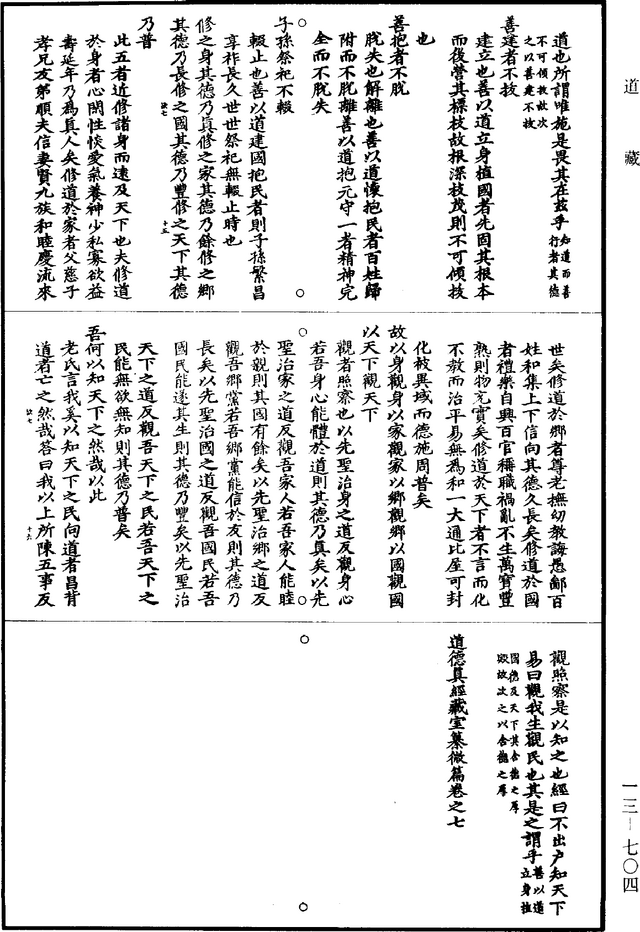 道藏
道也所謂唯施是畏其在茲乎知道而善行者其德
不可傾拔故次之以善建不拔
善建者不拔
建立也善以道立身植國者先固其根本
而後營其標枝故根深枝茂則不可傾拔
也
善抱者不脫
脫失也解離也善以道懷抱民者百姓歸
附而不脫離善以道抱元守一者精神完
全而不脫失
子孫祭祀不輟
輟止也善以道建國抱民者則子孫繁昌
享祚長久世世祭祀無輟止時也
修之身其德乃真修之家其德乃餘修之鄉
其德乃長修之國其德乃豐修之天下其德
乃普
此五者近修諸身而遠及天下也夫修道
於身者心閑性惔愛氣養神少私寡欲益
壽延年乃為真人矣修道於家者父慈子
孝兄友弟順夫信妻賢九族和睦慶流來
世矣修道於鄉者尊老撫幼教誨愚鄙百
姓和集上下信向其德久長矣修道於國
者禮樂自興百官稱職禍亂不生萬寶豐
熟則物充實矣修道於天下者不言而化
不教而治平易無為和一大通比屋可封
化被異域而德施周普矣
故以身觀身以家觀家以鄉觀鄉以國觀國
以天下觀天下
觀者照察也以先聖治身之道反觀身心
若吾身心能體於道則其德乃真矣以先
聖治家之道反觀吾家人若吾家人能睦
於親則其國有餘矣以先聖治鄉之道反
觀吾鄉黨若吾鄉黨能信於友則其德乃
長矣以先聖治國之道反觀吾國民若吾
國民能遂其生則其德乃豐矣以先聖治
天下之道反觀吾天下之民若吾天下之
民能無欲無知則其德乃普矣
吾何以知天下之然哉以此
老氏言我奚以知天下之民向道者昌背
道者亡之然哉答曰我以上所陳五事反
觀照察是以知之也經曰不出戶知天下
易曰觀我生觀民也其是之謂乎善以道立身植
國德及天下其含德之厚
歟故次之以含德之厚
道德真經藏室纂微篇卷之七
一三—七〇四